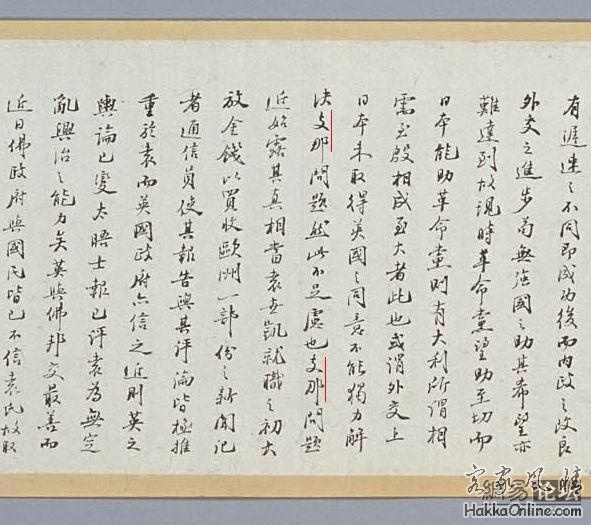 有遲速之不同即成功後而內政之改良
外交之進步苟無強國之助其希望亦
難達到故現時革命黨望助至切而
日本能助革命黨則有大利所謂相
需至殷相成至大者此也或謂外交上
日本未取得英國之同意不能獨力解
决支那問題然此不足慮也支那問題
近始露其真相當袁世凱就職之初大
放金錢以買收歐洲一部份之新聞記
者通信員使其報告與其評論皆極推
重於袁而英國政府亦信之近則英之
輿論已變太晤士報已評袁為無定
亂興治之能力矣英與佛邦交最善而
近日佛政府與國民皆已不信袁氏故取
HakkaOnline.com